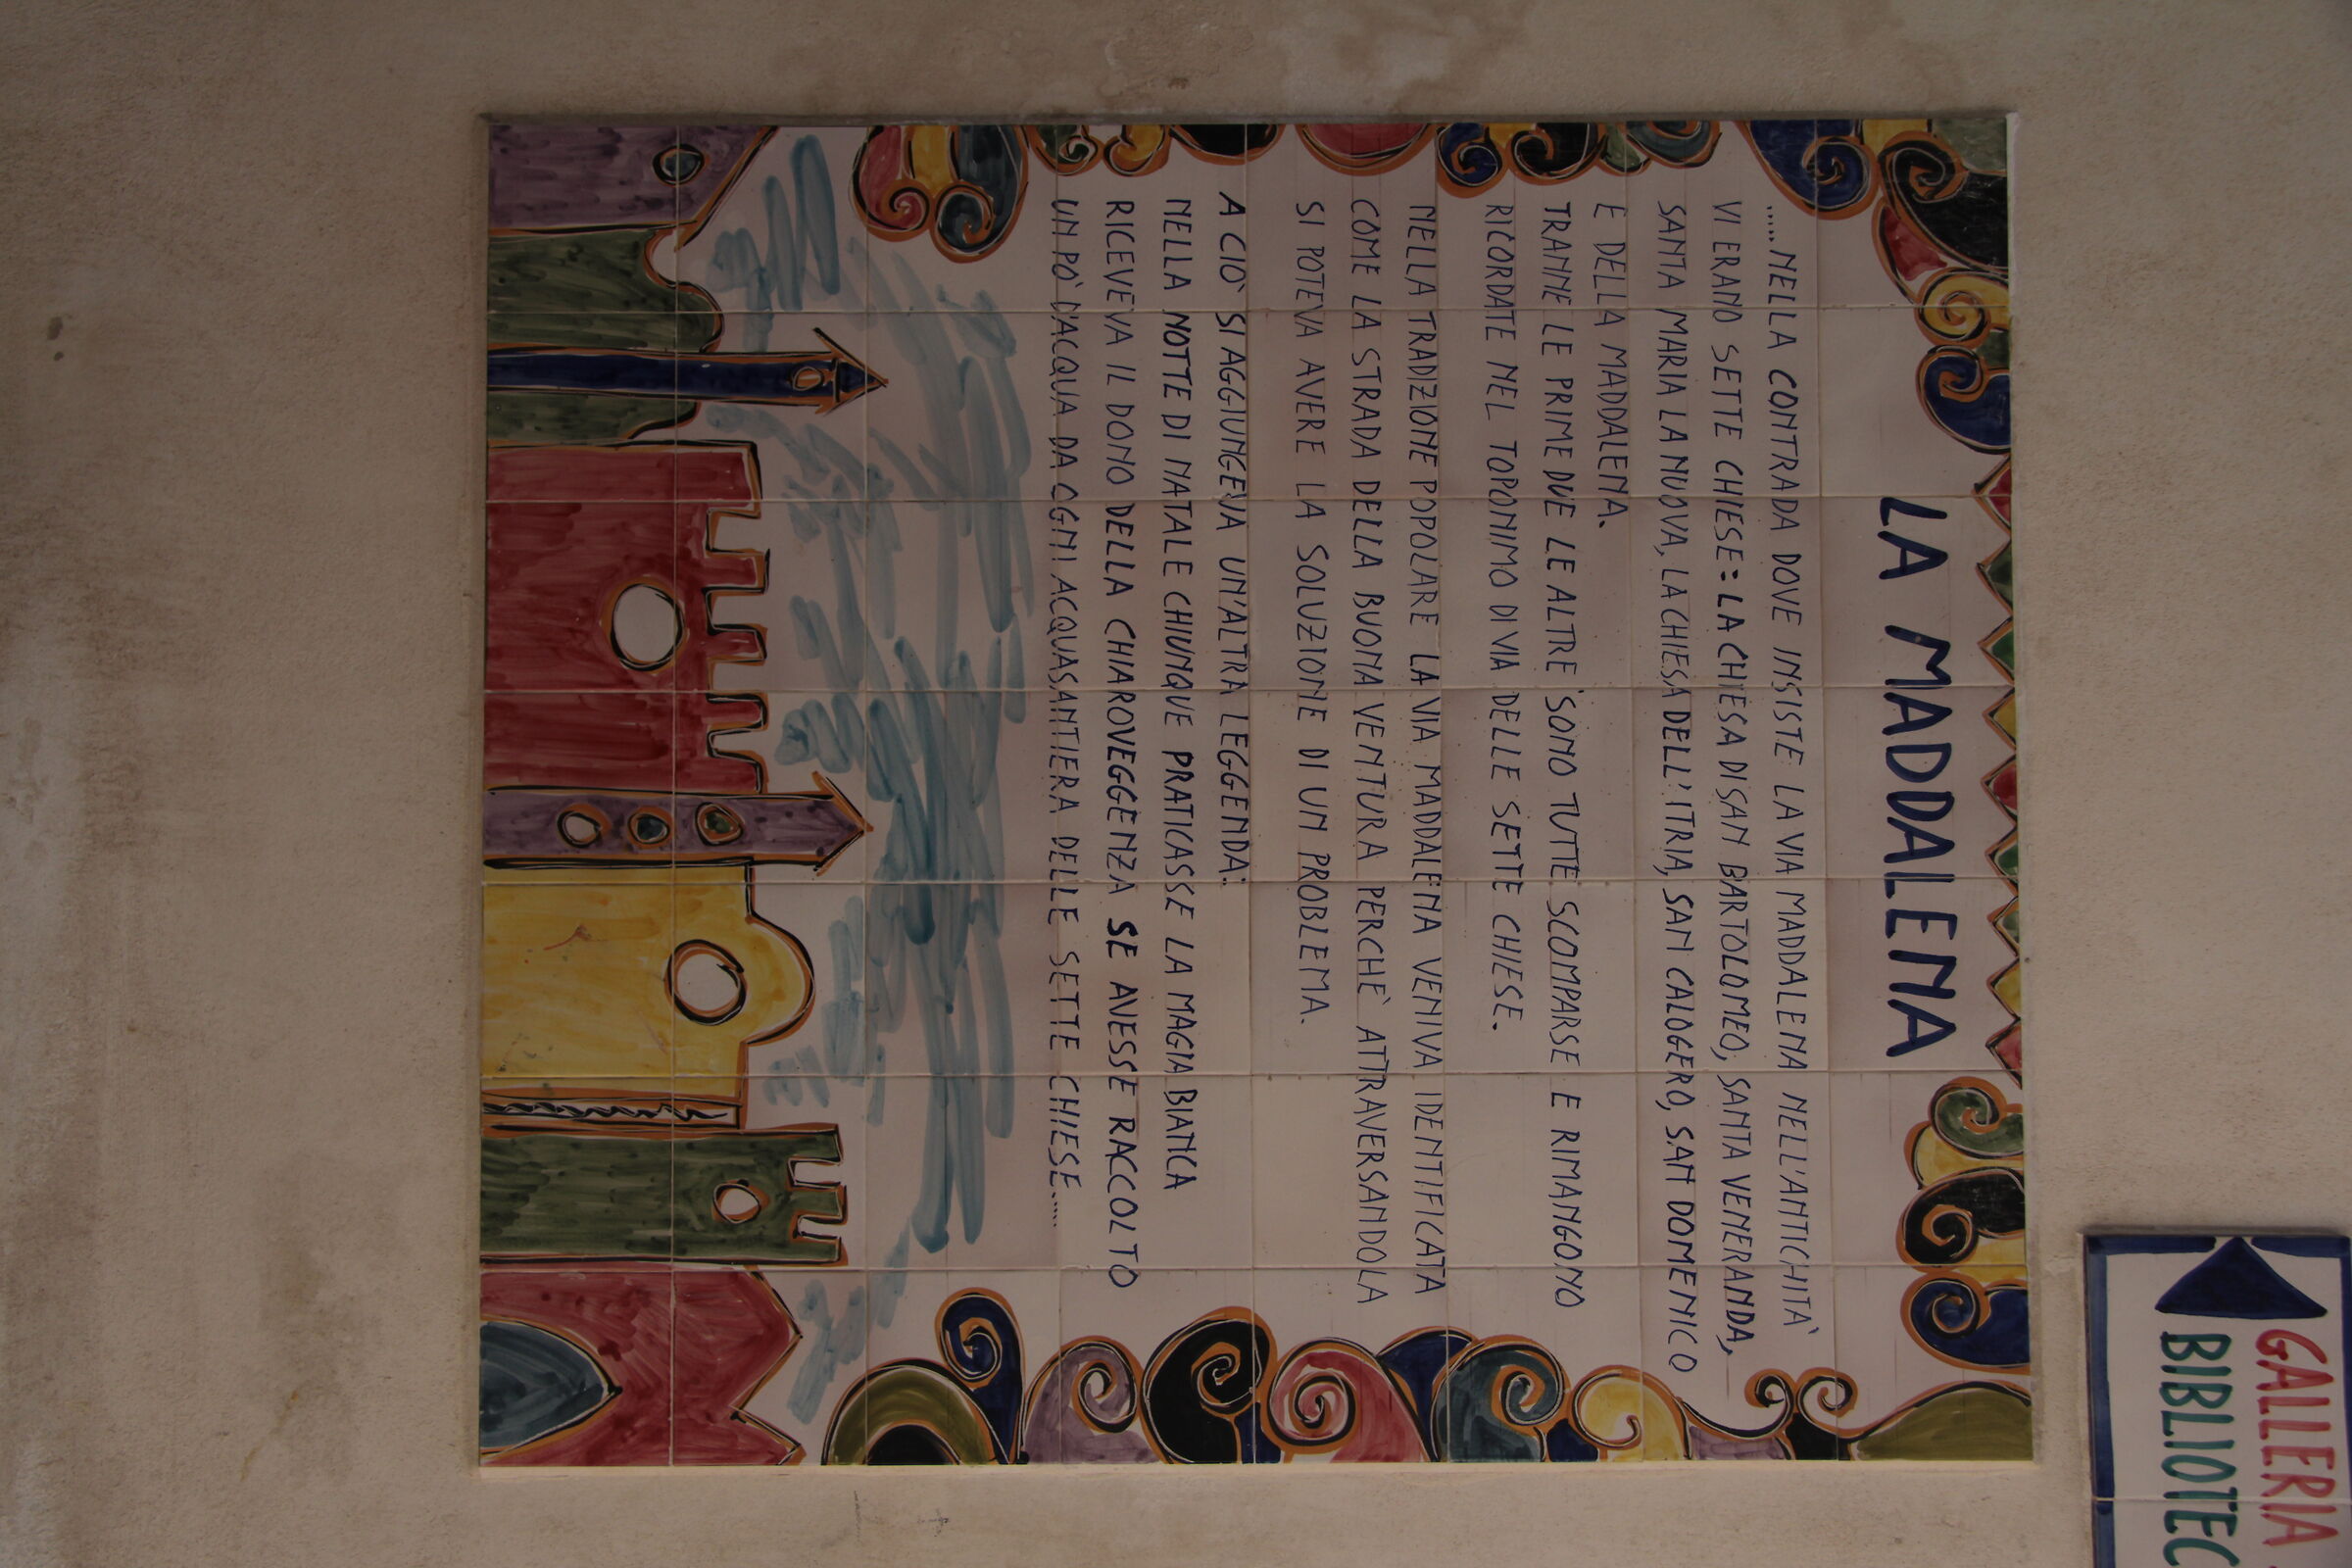 LA MADDALENA
.....NELLA CONTRADA DOVE INSISTE LA VIA MADDALENA NELL'ANTICHITA'
VI ERANO SETTE CHIESE: LA CHIESA DI SAN BARTOLOMEO, SANTA VENERANDA,
SANTA MARIA LA NUOVA, LA CHIESA DELL'ITRIA, SAN CALOGERO, SAN DOMENICO
E DELLA MADDALENA.
TRANNE LE PRIME DUE LE ALTRE SONO TUTTE SCOMPARSE E RIMANGONO
RICORDATE NEL TOPONIMO DI VIA DELLE SETTE CHIESE.
NELLA TRADIZIONE POPOLARE LA VIA MADDALENA VENIVA IDENTIFICATA
COME LA STRADA DELLA BUONA VENTURA PERCHE' ATTRAVERSANDOLA
SI POTEVA AVERE LA SOLUZIONE DI UN PROBLEMA.
A CIO' SI AGGIUNGEVA UN'ALTRA LEGGENDA:
NELLA NOTTE DI NATALE CHIUNQUE PRATICASSE LA MAGIA BIANCA
RICEVEVA IL DONO DELLA CHIAROVEGGENZA SE AVESSE RACCOLTO
UN PO' D'ACQUA DA OGNI ACQUASANTIERA DELLE SETTE CHIESE.....
GALLERIA
BIBLIOTEC